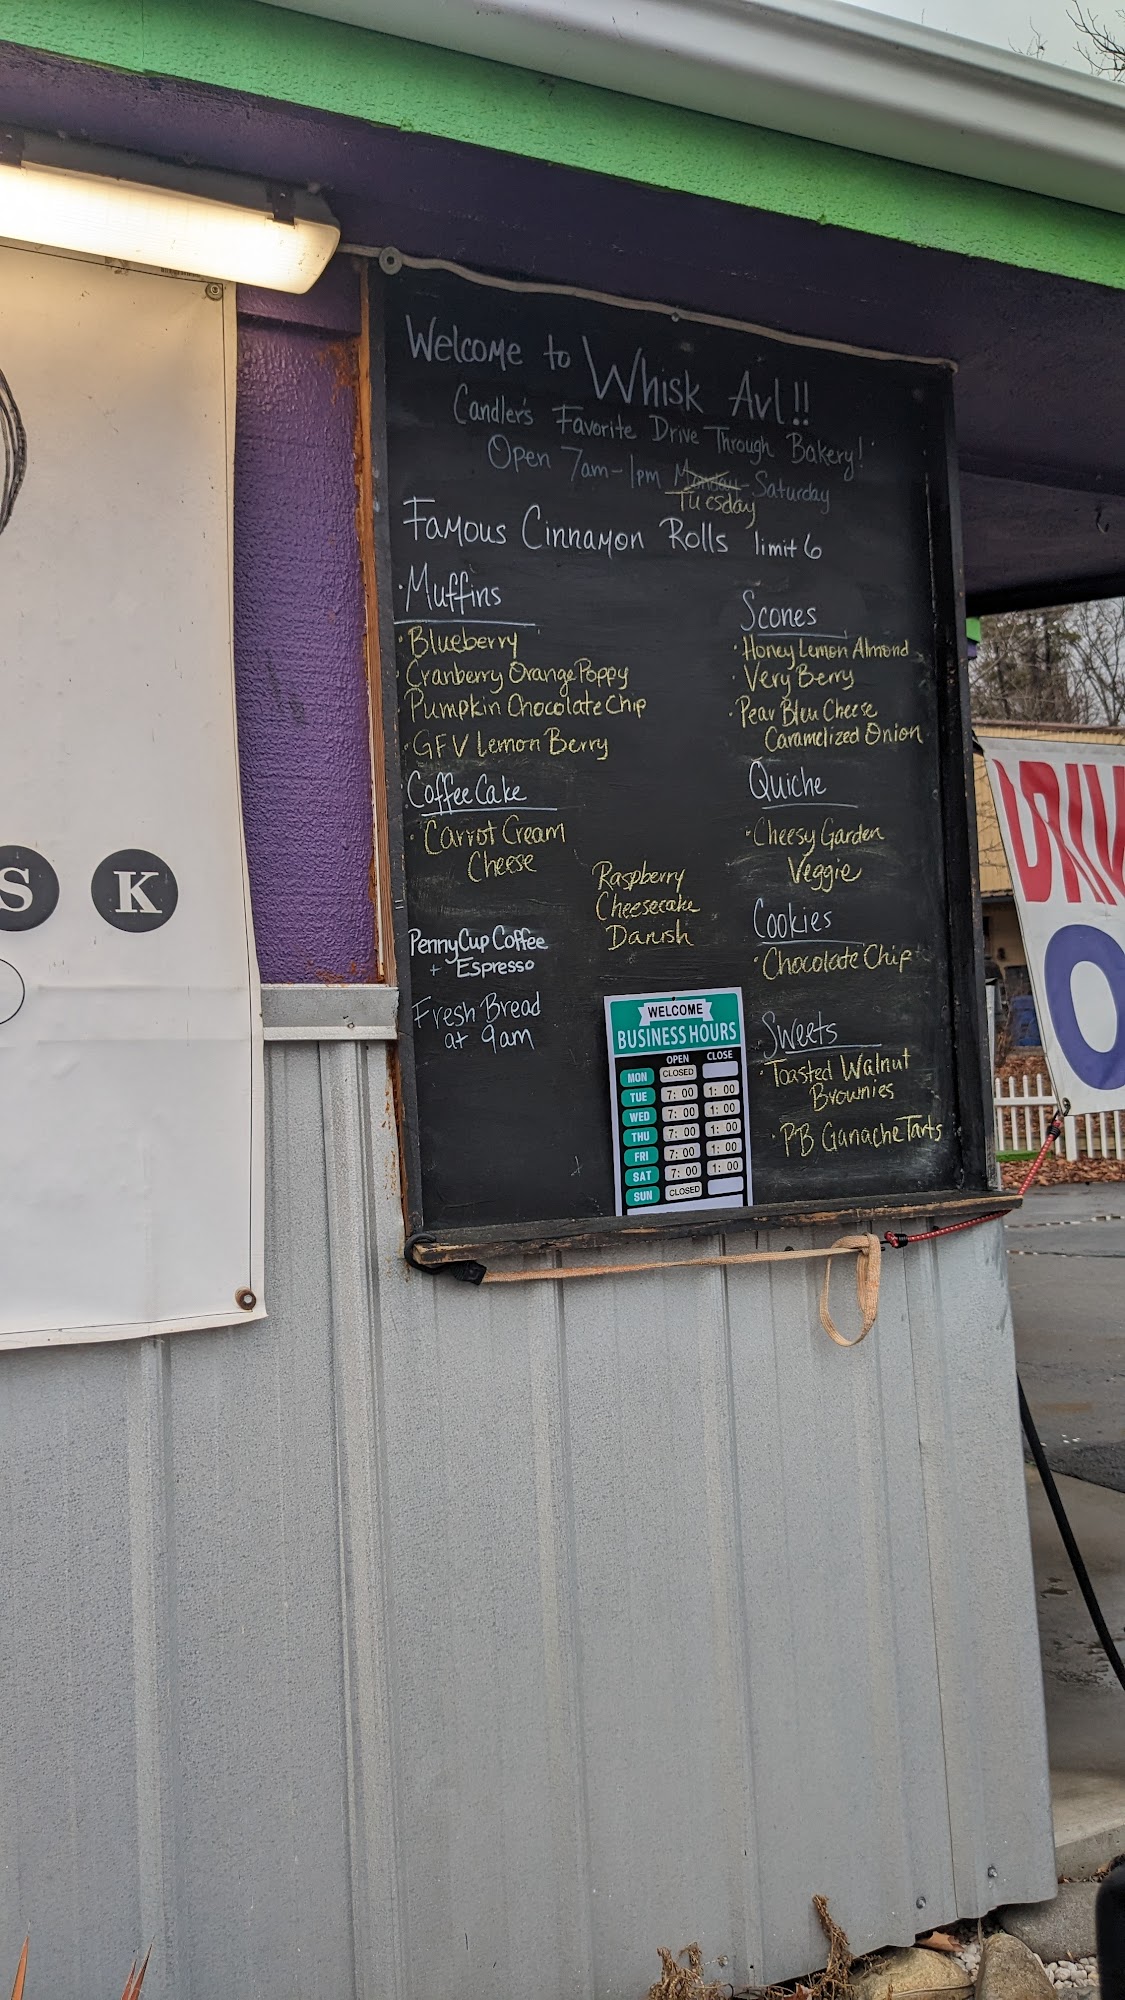 Welcome to Whisk Avl!!
Candler's Favorite Drive Through Bakery!
Open 7am-1pm Monday-Saturday
Tuesday
Famous Cinnamon Rolls limit 6
·Muffins
·Blueberry
·Cranberry Orange Poppy
·Pumpkin Chocolate Chip
·GFV Lemon Berry
·Coffee Cake
·Carrot Cream
Cheese
PennyCup Coffee
+ Espresso
Fresh Bread
at 9am
Raspberry
Cheesecake
Danish
Scones
·Honey Lemon Almond
·Very Berry
·Pear Bleu Cheese
Caramelized Onion
Quiche
·Cheesy Garden
Veggie
Cookies
·Chocolate Chip
Sweets
·Toasted Walnut
Brownies
·PB Ganache Tarts
WELCOME
BUSINESS HOURS
OPEN CLOSE
MON CLOSED
TUE 7:00 1:00
WED 7:00 1:00
THU 7:00 1:00
FRI 7:00 1:00
SAT 7:00 1:00
SUN CLOSED
S K
DRIV
O